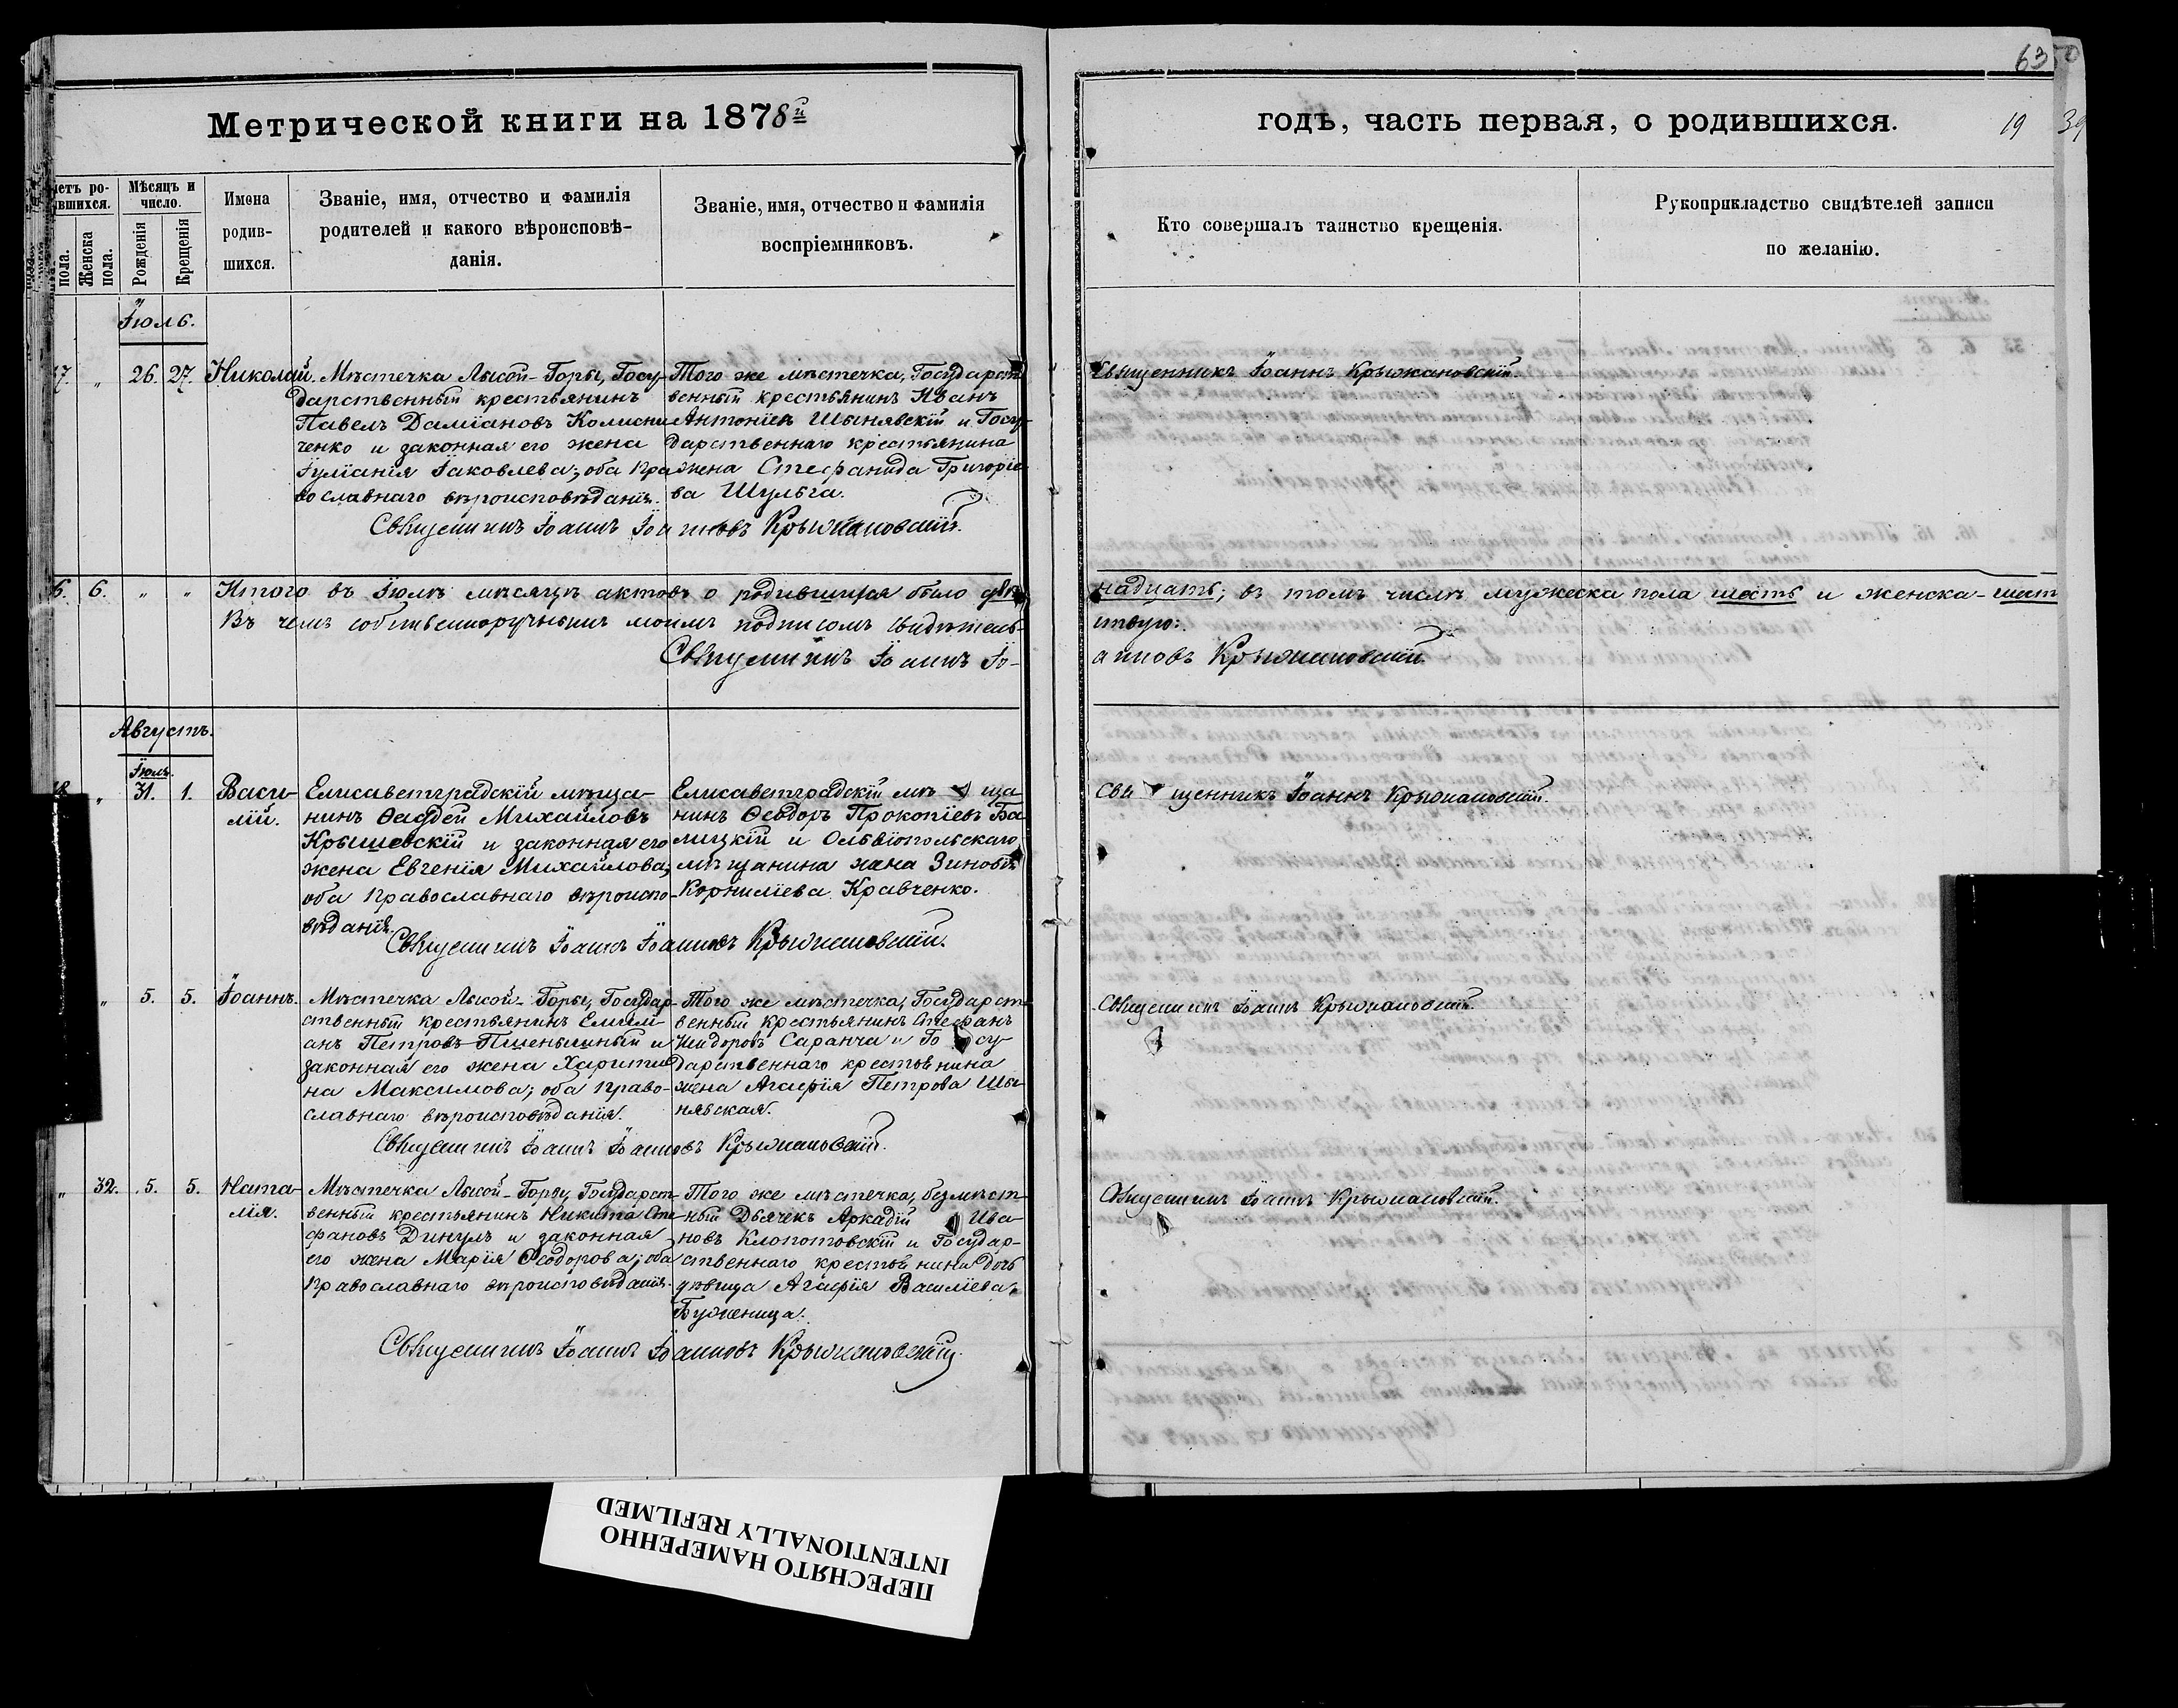 63 50
Метрической книги на 1878й
годѣ, часть первая, о родившихся.
19 39
четъ ро-
ившихся.
пола.
Женска пола.
Мѣсяцъ и число.
Рожденія
Крещенія
Имена
родив-
шихся.
Званіе, имя, отчество и фамилія
родителей и какого вѣроисповѣ-
данія.
Званіе, имя, отчество и фамилія
воспріемниковъ.
Кто совершалъ таинство крещенія.
Рукоприкладство свидѣтелей записи
по желанію.
Іюль.
37. " 26. 27. Николай.
Мѣстечка Лысой-Горы, Госу-
дарственный крестьянинъ
Павелъ Даміановъ Колисни
ченко и законная его жена
Іуліанія Іаковлева; оба пра
вославнаго вѣроисповѣданія.
Того же мѣстечка, Государст
венный крестьянинъ Иванъ
Антоніевъ Шынявскій и Госу-
дарственнаго крестьянина
жена Стефанида Григоріе
ва Шульга.
Священникъ Іоаннъ Крыжановскій.
Священникъ Іоаннъ Іоанновъ Крыжановскій.
6. 6. " " Итого въ Іюлѣ мѣсяцѣ актовъ о родившихся было двѣ
надцать; въ томъ числѣ мужеска пола шесть и женска-шест
Въ чемъ собственноручнымъ моимъ подписомъ свидѣтель-
ствую:
Священникъ Іоаннъ Іо-
анновъ Крыжановскій.
Августъ.
Іюль.
31. 1. Васи-
лій.
Елисаветградскій мѣща-
нинъ Ѳаддей Михайловъ
Крышевскій и законная его
жена Евгенія Михайлова;
оба православнаго вѣроиспо-
вѣданія.
Елисаветградскій мѣ ща-
нинъ Ѳеодоръ Прокопіевъ Ба
лицкій и Ольвіопольскаго
мѣщанина жена Зиновія
Корниліева Кравченко.
Свя щенникъ Іоаннъ Крыжановскій.
Священникъ Іоаннъ Іоанновъ Крыжановскій.
" 5. 5. Іоаннъ.
Мѣстечка Лысой-Горы, Государ-
ственный крестьянинъ Емили
анъ Петровъ Пшеньшный и
законная его жена Харити
на Максимова; оба право-
славнаго вѣроисповѣданія.
Того же мѣстечка, Государст-
венный крестьянинъ Стефанъ
Исидоровъ Саранча и Го су-
дарственнаго крестьянина
жена Агафія Петрова Шы-
нявская.
Священникъ Іоаннъ Крыжановскій.
Священникъ Іоаннъ Іоанновъ Крыжановскій.
" 32. 5. 5. Ната-
лія.
Мѣстечка Лысой-Горы, Государст-
венный крестьянинъ Никита Сте-
фановъ Динулъ и законная
его жена Марія Ѳеодорова; оба
православнаго вѣроисповѣданія.
Того же мѣстечка, безмѣст-
ный Дьячекъ Аркадій Ива-
новъ Клопотовскій и Государ-
ственнаго крестьянина дочь
дѣвица Агафія Василіева
Буженица.
Священникъ Іоаннъ Крыжановскій.
Священникъ Іоаннъ Іоанновъ Крыжановскій.
ПЕРЕСНЯТО НАМЕРЕННО
INTENTIONALLY REFILMED